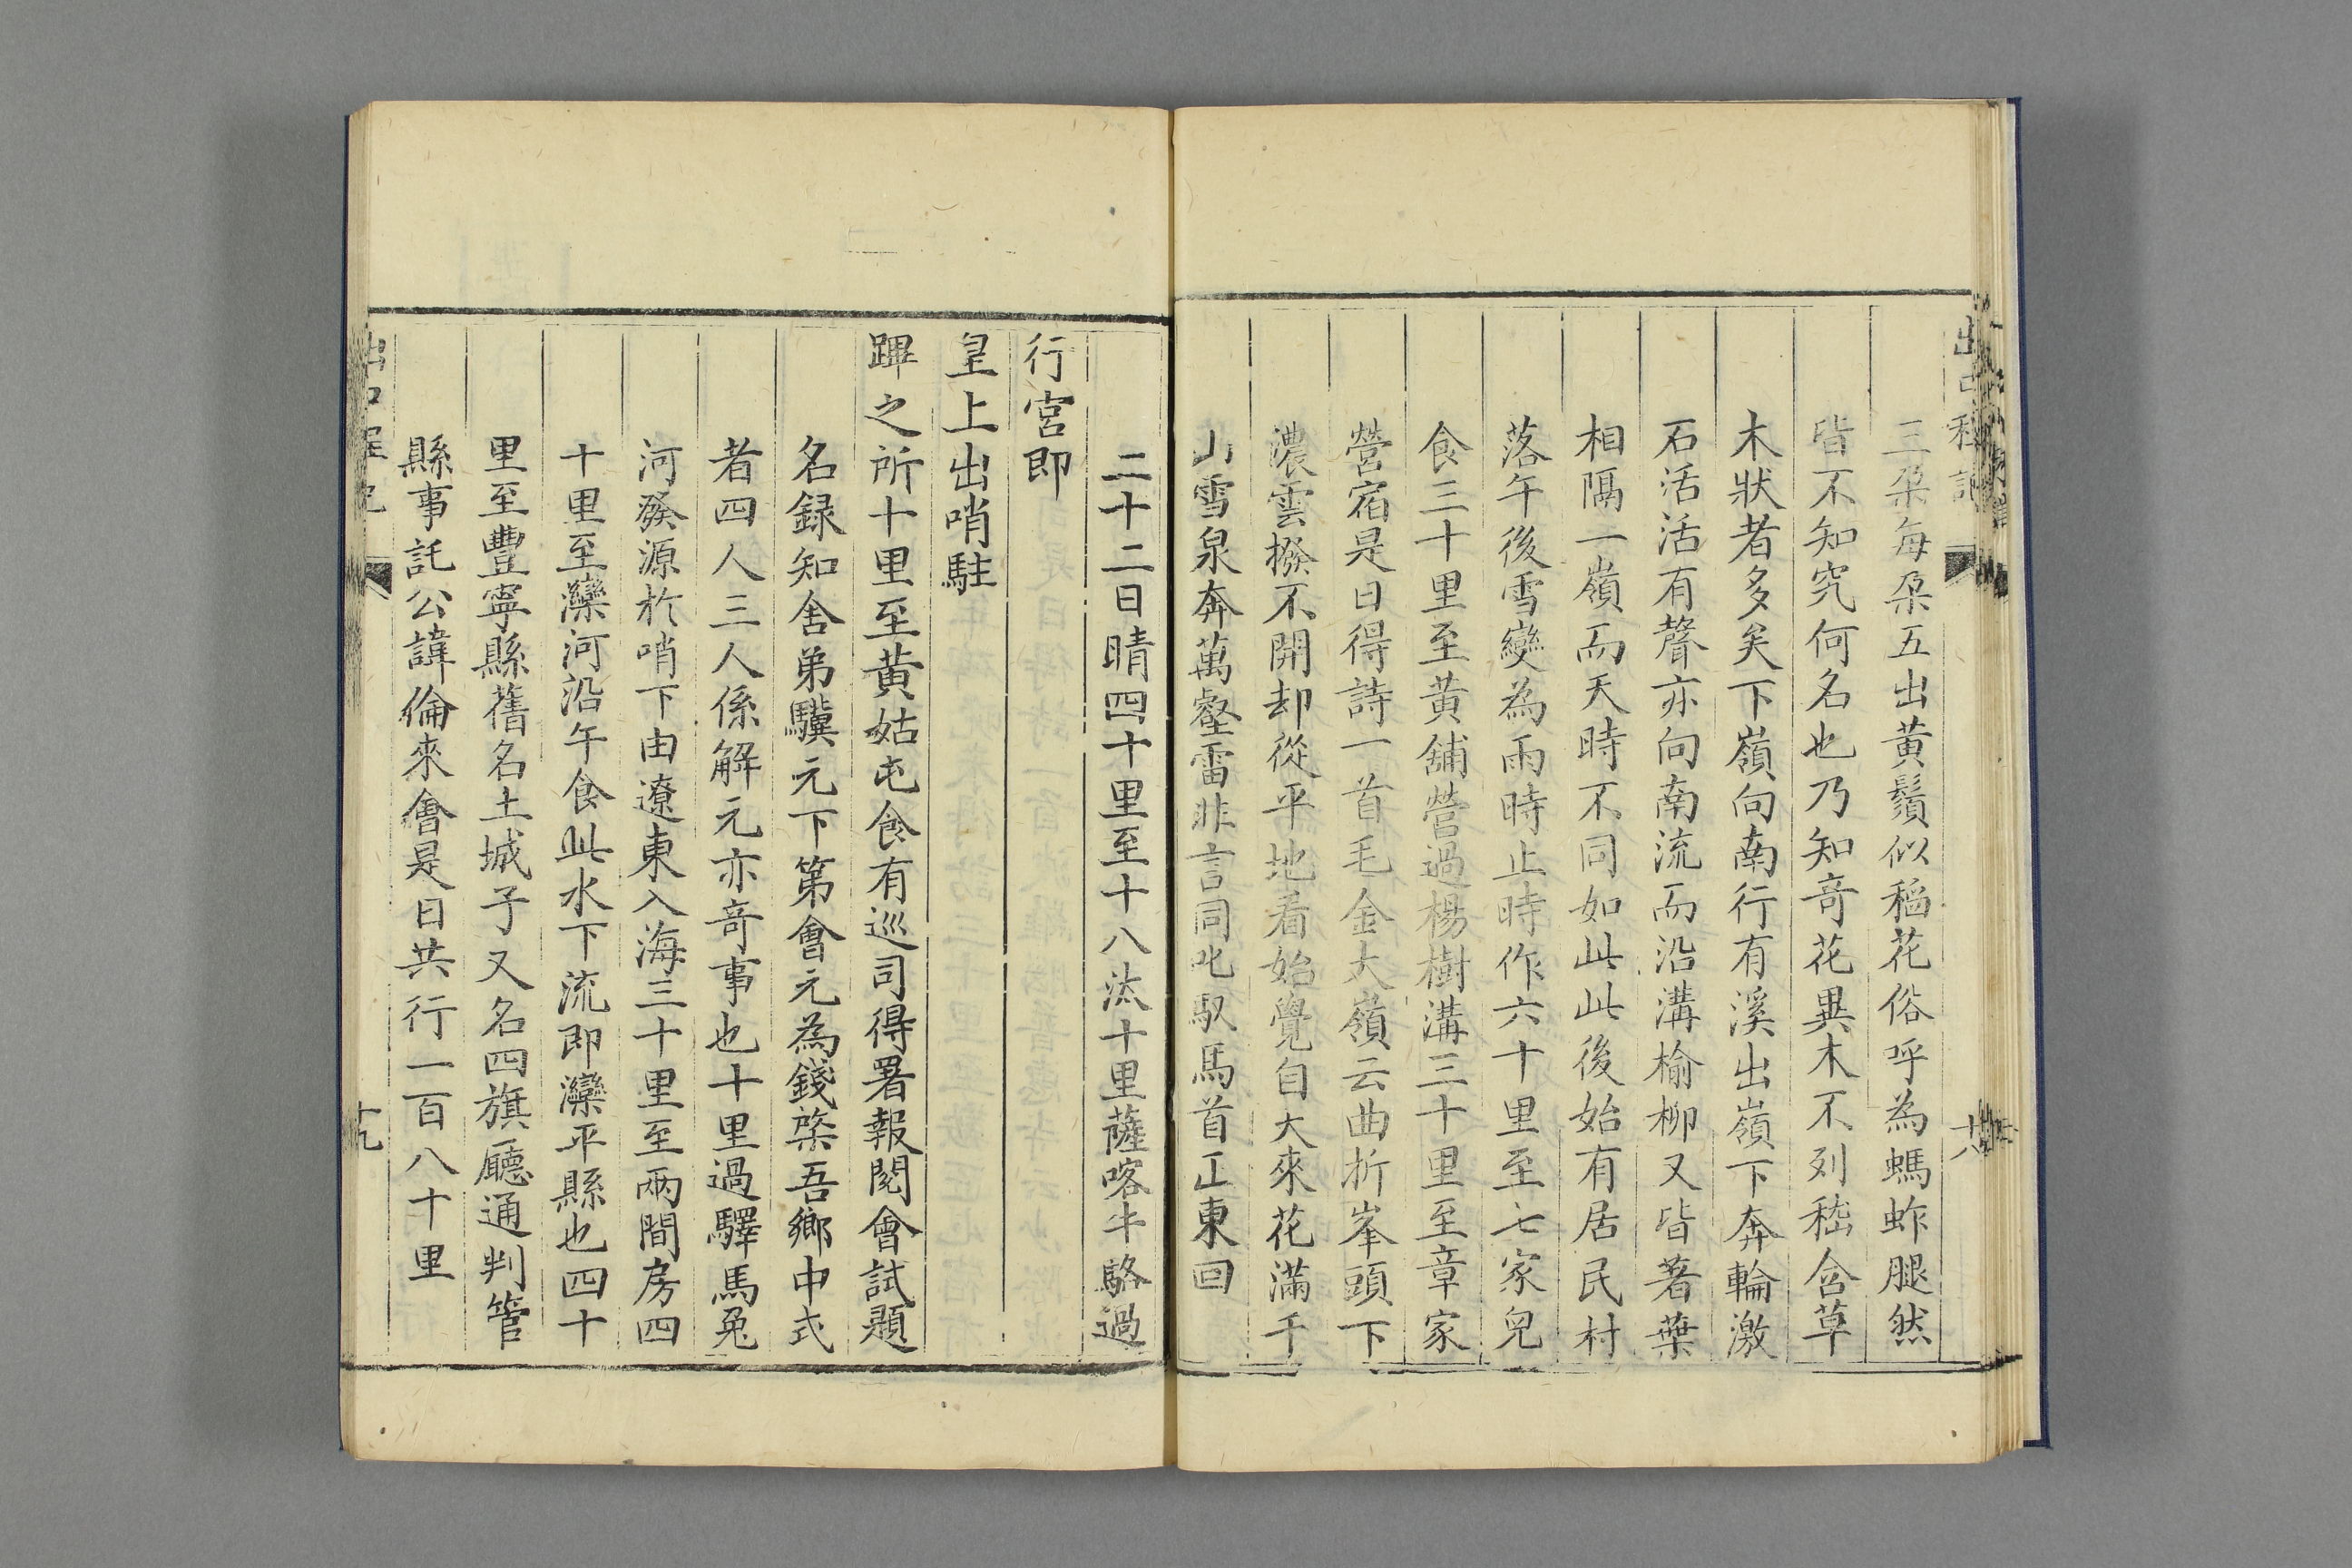 三朶每朶五出黃鬚似稻花俗呼為螞蚱腿然
皆不知究何名也乃知奇花異木不列嵇含草
木狀者多矣下嶺向南行有溪出嶺下奔輪激
石活活有聲亦向南流而沿溝榆柳又皆著葉
相隔一嶺而天時不同如此此後始有居民村
落午後雪變為雨時止時作六十里至七家兒
食三十里至黃舖營過楊樹溝三十里至章家
營宿是日得詩一首毛金大嶺云曲折峯頭下
濃雲撥不開却從平地看始覺自大來花滿千
山雪泉奔萬壑雷非言同叱馭馬首正東回
二十二日晴四十里至十八汰十里薩喀牛駱過
行宮即
皇上出哨駐
蹕之所十里至黃姑屯食有巡司得署報閱會試題
名録知舍弟驥元下第會元為錢棨吾鄉中式
者四人三人係解元亦奇事也十里過驛馬兔
河發源於哨下由遼東入海三十里至兩間房四
十里至灤河沿午食此水下流即灤平縣也四十
里至豐寧縣舊名土城子又名四旗廳通判管
縣事託公諱倫來會是日共行一百八十里
十九